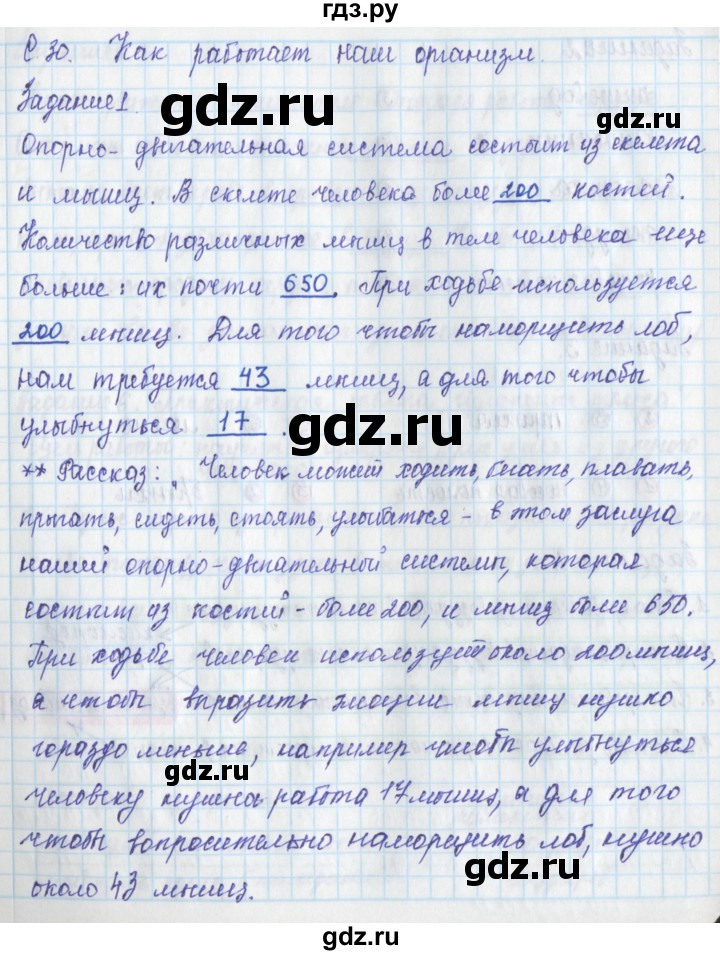 гдз.ру
С 30. Как работает наш организм.
Задание 1.
gdz.ru gdz.ru
Опорно-двигательная система состоит из скелета
и мышц. В скелете человека более 200 костей.
Количество различных мышц в теле человека еще
больше: их почти 650. При ходьбе используется
200 мышц. Для того чтобы наморщить лоб,
gdz.ru gdz.ru
нам требуется 43 мышц, а для того чтобы
улыбнуться 17.
** Рассказ: Человек может ходить, бегать, плавать,
gdz.ru gdz.ru
прыгать, сидеть, стоять, улыбаться - в этом заслуга
нашей опорно-двигательный системы, которая
состоит из костей - более 200, и мышц более 650.
gdz.ru gdz.ru
При ходьбе человек использует около 200 мышц,
а чтобы выразить эмоции мышц нужно
гораздо меньше, например чтобы улыбнуться
gdz.ru
человеку нужна работа 17 мышц, а для того
gdz.ru
чтобы вопросительно наморщить лоб, нужно
около 43 мышц.
gdz.ru gdz.ru
gdz.ru